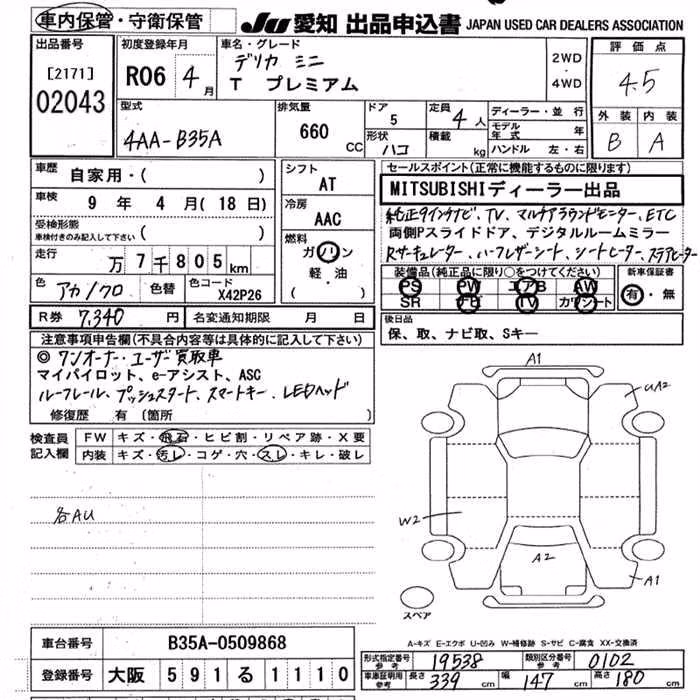 車内保管・守衛保管 JU 愛知 出品申込書 JAPAN USED CAR DEALERS ASSOCIATION
出品番号 [2171] 02043
初度登録年月 R06年 4月
車名・グレード デリカ ミニ T プレミアム
2WD・4WD
評価点 4.5
外装 内装
B A
型式 4AA-B35A
排気量 660 CC
ドア 5
形状 ハコ
定員 4人
積載 kg
ディーラー・並行
モデル年式 年
ハンドル 左・右
車歴 自家用・( )
車検 9年 4月(18日)
受検形態 車検付きのみ記入して下さい ( )
走行 万7千805km
色 アカ/クロ 色替 色コード X42P26
シフト AT
冷房 AAC
燃料 ガソリン 軽・油 ( )
セールスポイント(正常に機能するものに限ります)
MITSUBISHIディーラー出品
純正9インチナビ、TV、マルチアラウンドモニター、ETC
両側Pスライドドア、デジタルルームミラー
Rサーキュレーター、ハーフレザーシート、シートヒーター、ステアヒーター
装備品(純正品に限り○をつけてください)
PS PW エアB AW
SR TV カワシート
新車保証書 有・無
R券 7,340円 名変通知期限 月 日
後日品
保、取、ナビ取、Sキー
注意事項申告欄(不具合内容等は具体的に記入して下さい)
◎ワンオーナー・ユーザー買取車
マイパイロット、e-アシスト、ASC
ルーフレール、プッシュスタート、スマートキー、LEDヘッド
修復歴 有〔箇所
検査員記入欄
FW キズ・飛石・ヒビ割・リペア跡・X要
内装 キズ・汚レ・コゲ・穴・スレ・キレ・破レ
各AU
A1
UA2
W2
A2
A1
スペア
A-キズ E-エクボ U-凹み W-補修跡 S-サビ C-腐食 XX-交換済
車台番号 B35A-0509868
登録番号 大阪 591る1110
形式指定番号 参考 19538 類別区分番号 参考 0102
車庫証明用 参考 長さ 339cm 幅 147cm 高さ 180cm